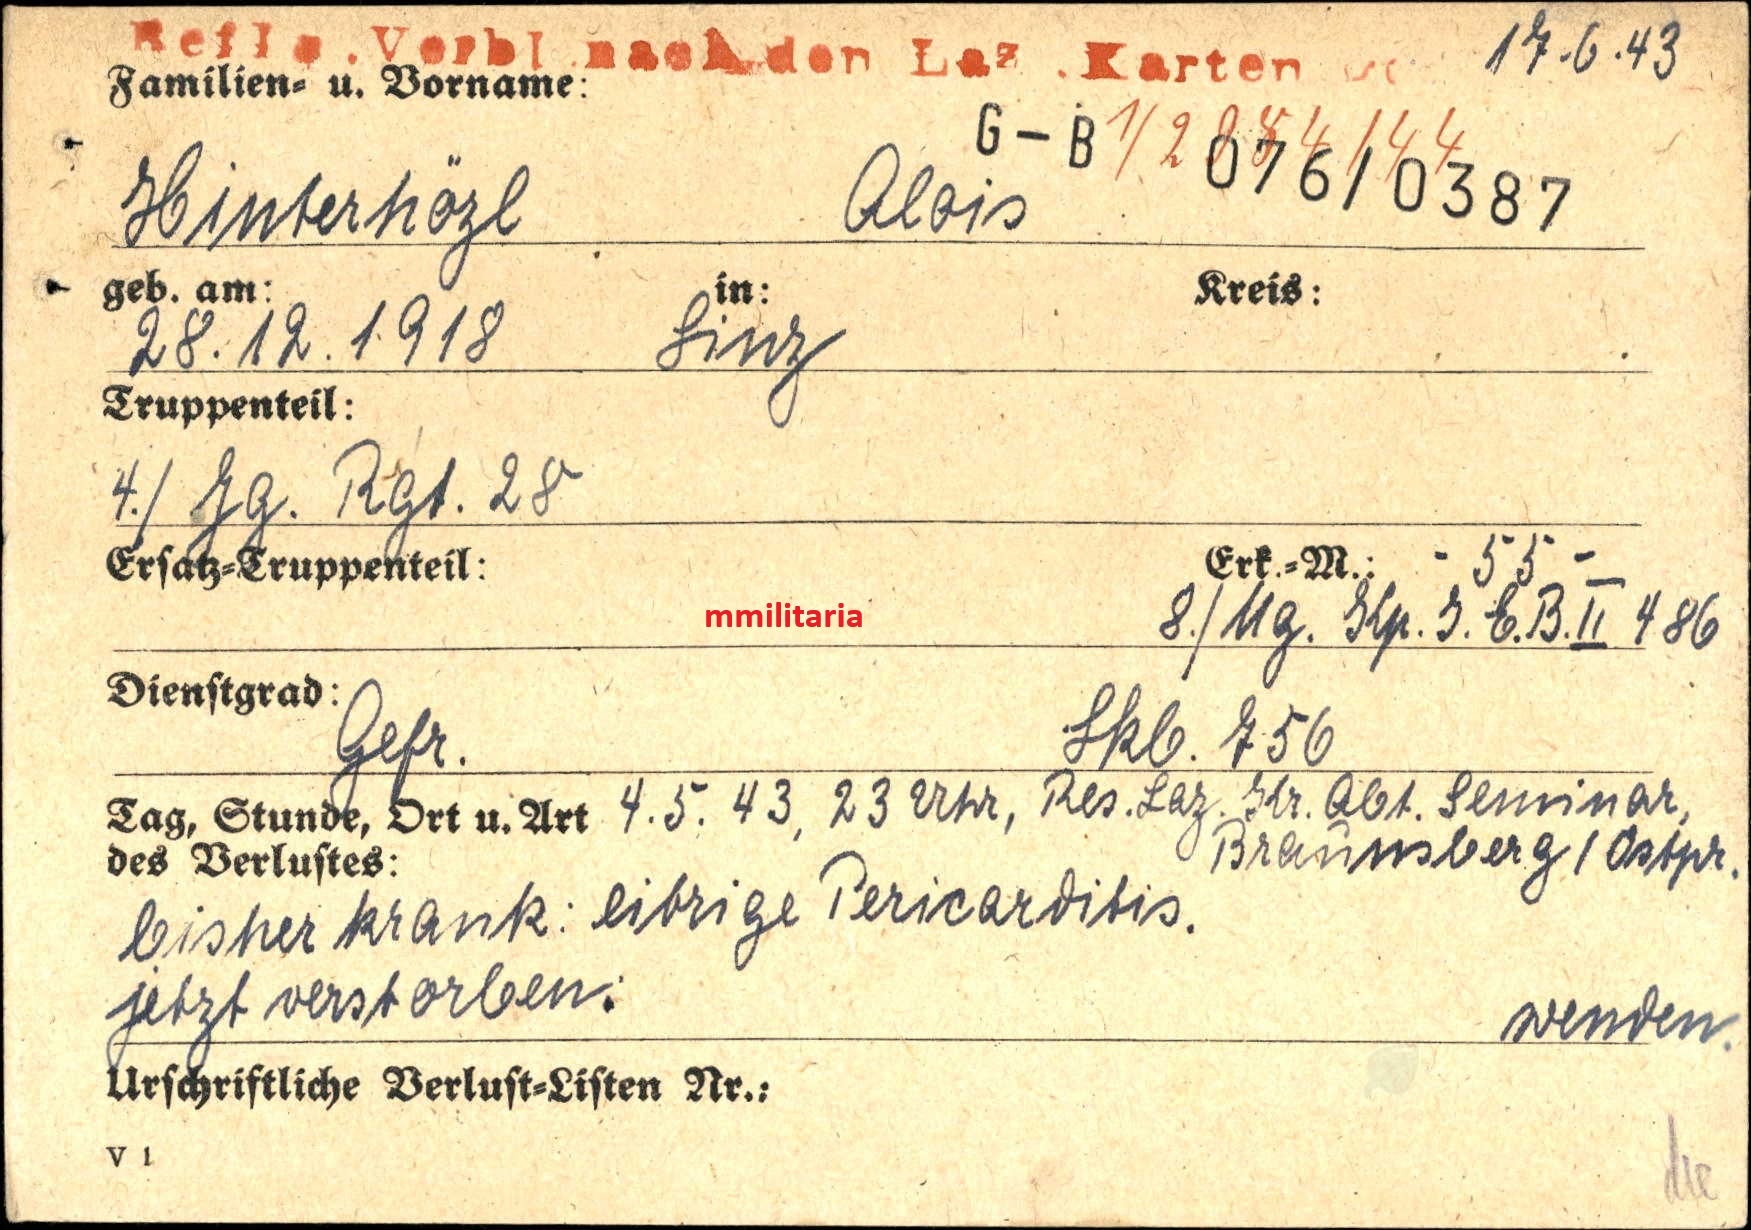 Verbl. nach den Laz. Karten
17.6.43
Familien- u. Vorname:
G-B 1/2 076/0387
Hinterhözl Alois
geb. am: in: Kreis:
28.12.1918 Linz
Truppenteil:
4./ Jg. Rgt. 28
Ersatz-Truppenteil: Erk.-M.: - 55 -
mmilitaria
8./ Mg. Kp. I. E. B. II 486
Dienstgrad:
Gefr. Lkb. 756
Tag, Stunde, Ort u. Art 4.5.43, 23 Uhr, Res. Laz. Kr. Abt. Seminar,
des Verlustes: Braunsberg / Ostpr.
bisher krank: eitrige Pericarditis.
jetzt verstorben:
wenden.
Urschriftliche Verlust-Listen Nr.:
V 1